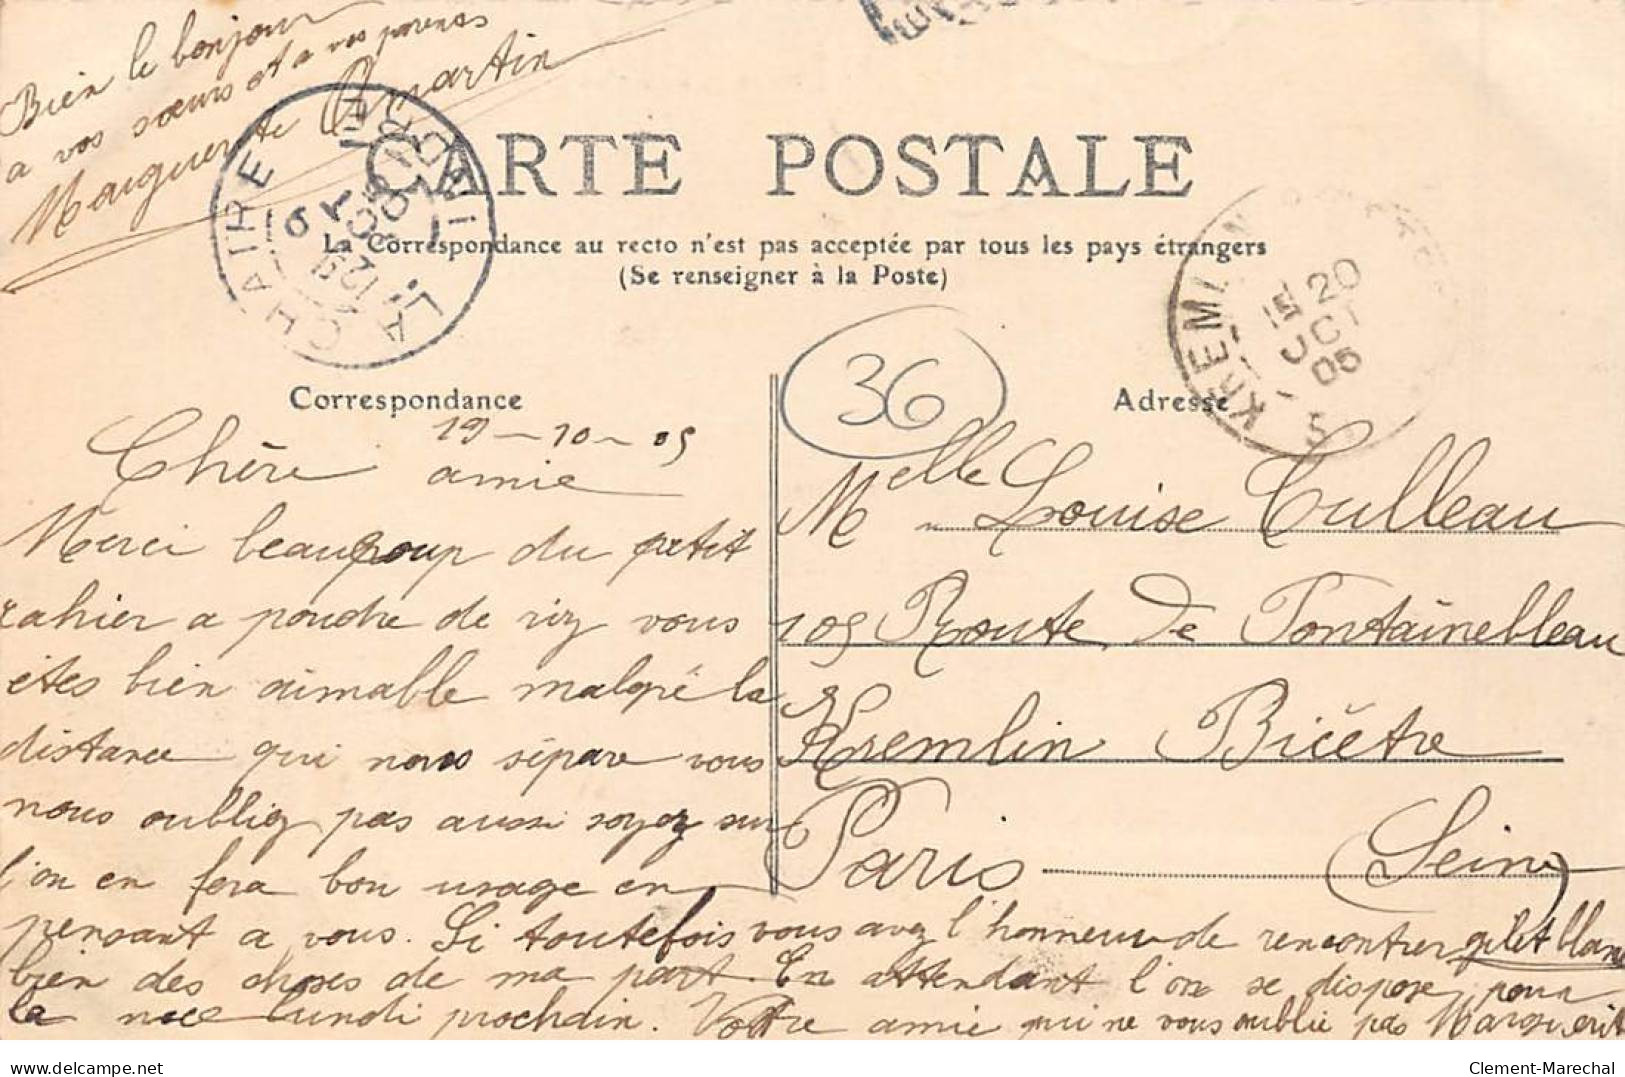 Bien le bonjour
a vos sœurs et a vos parents
Marguerite Martin
CARTE POSTALE
La Correspondance au recto n'est pas acceptée par tous les pays étrangers
(Se renseigner à la Poste)
LA CHATRE INDRE
12
19 OCT
KREMLIN
20
OCT
05
36
Correspondance
19-10-05
Chère amie
Merci beaucoup du petit
cahier a poudre de riz vous
êtes bien aimable malgré la
distance qui nous sépare vous
nous oubliez pas aussi soyez sur
l'on en fera bon usage en
pensant a vous. Si toutefois vous avez l'honneur de rencontrer gilet blanc
bien des choses de ma part. En attendant l'on se dispose pour
la noce lundi prochain. Vottre amie qui ne vous oublie pas Marguerite
Adresse
Melle Louise Culleau
105 Route De Fontainebleau
Kremlin Bicêtre
Paris (Seine)
www.delcampe.net
Clement-Marechal